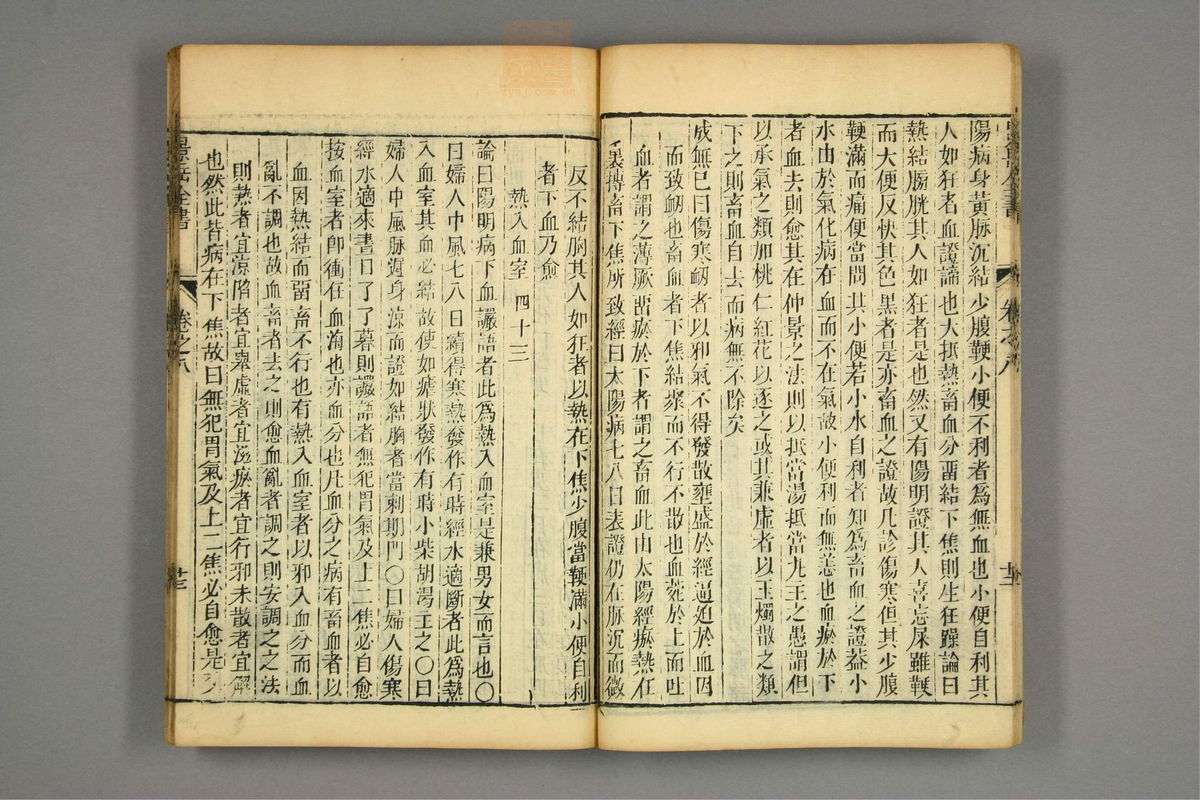 陽病身黃脉沉結少腹鞕小便不利者爲無血也小便自利其
人如狂者血證諦也大抵熱畜血分畱結下焦則生狂躁論曰
熱結膀胱其人如狂者是也然又有陽明證其人喜忘屎雖鞕
而大便反快其色黑者是亦畜血之證故凡診傷寒但其少腹
鞕滿而痛便當問其小便若小水自利者知爲畜血之證葢小
水由於氣化病在血而不在氣故小便利而無恙也血瘀於下
者血去則愈其在仲景之法則以抵當湯抵當丸主之愚謂但
以承氣之類加桃仁紅花以逐之或其兼虛者以玉燭散之類
下之則畜血自去而病無不除矣
成無已曰傷寒衂者以邪氣不得發散壅盛於經逼廹於血因
而致衂也畜血者下焦結聚而不行不散也血菀於上而吐
血者謂之薄厥畱瘀於下者謂之畜血此由太陽經瘀熱在
裏搏畜下焦所致經曰太陽病七八日表證仍在脉沉而微
反不結胸其人如狂者以熱在下焦少腹當鞕滿小便自利
者下血乃愈
熱入血室 四十三
論曰陽明病下血讝語者此爲熱入血室是兼男女而言也〇
曰婦人中風七八日續得寒熱發作有時經水適斷者此爲熱
入血室其血必結故使如瘧狀發作有時小柴胡湯主之〇曰
婦人中風脉遲身涼而證如結胸者當刺期門〇曰婦人傷寒
經水適來晝日了了暮則讝語者無犯胃氣及上二焦必自愈
按血室者卽衝任血海也亦血分也凡血分之病有畜血者以
血因熱結而畱畜不行也有熱入血室者以邪入血分而血
亂不調也故血畜者去之則愈血亂者調之則安調之之法
則熱者宜涼陷者宜舉虛者宜滋瘀者宜行邪未散者宜解
也然此皆病在下焦故曰無犯胃氣及上二焦必自愈是
景岳全書
卷之八